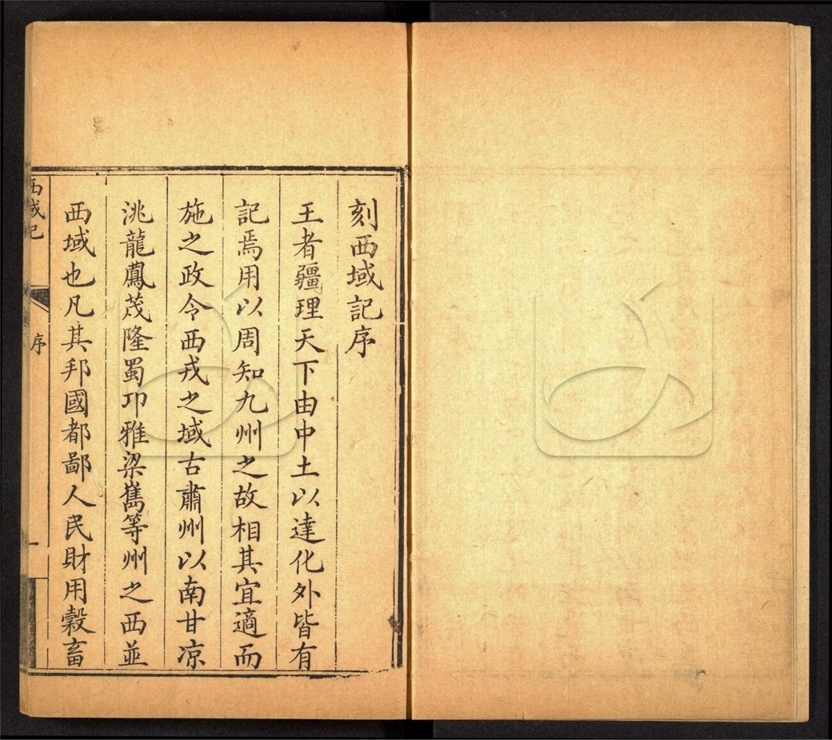 刻西域記序
王者疆理天下由中土以達化外皆有
記焉用以周知九州之故相其宜適而
施之政令西戎之域古肅州以南甘凉
洮龍鳳茂隆蜀卭雅梁嶲等州之西並
西域也凡其邦國都鄙人民財用穀畜
西域記
序
一